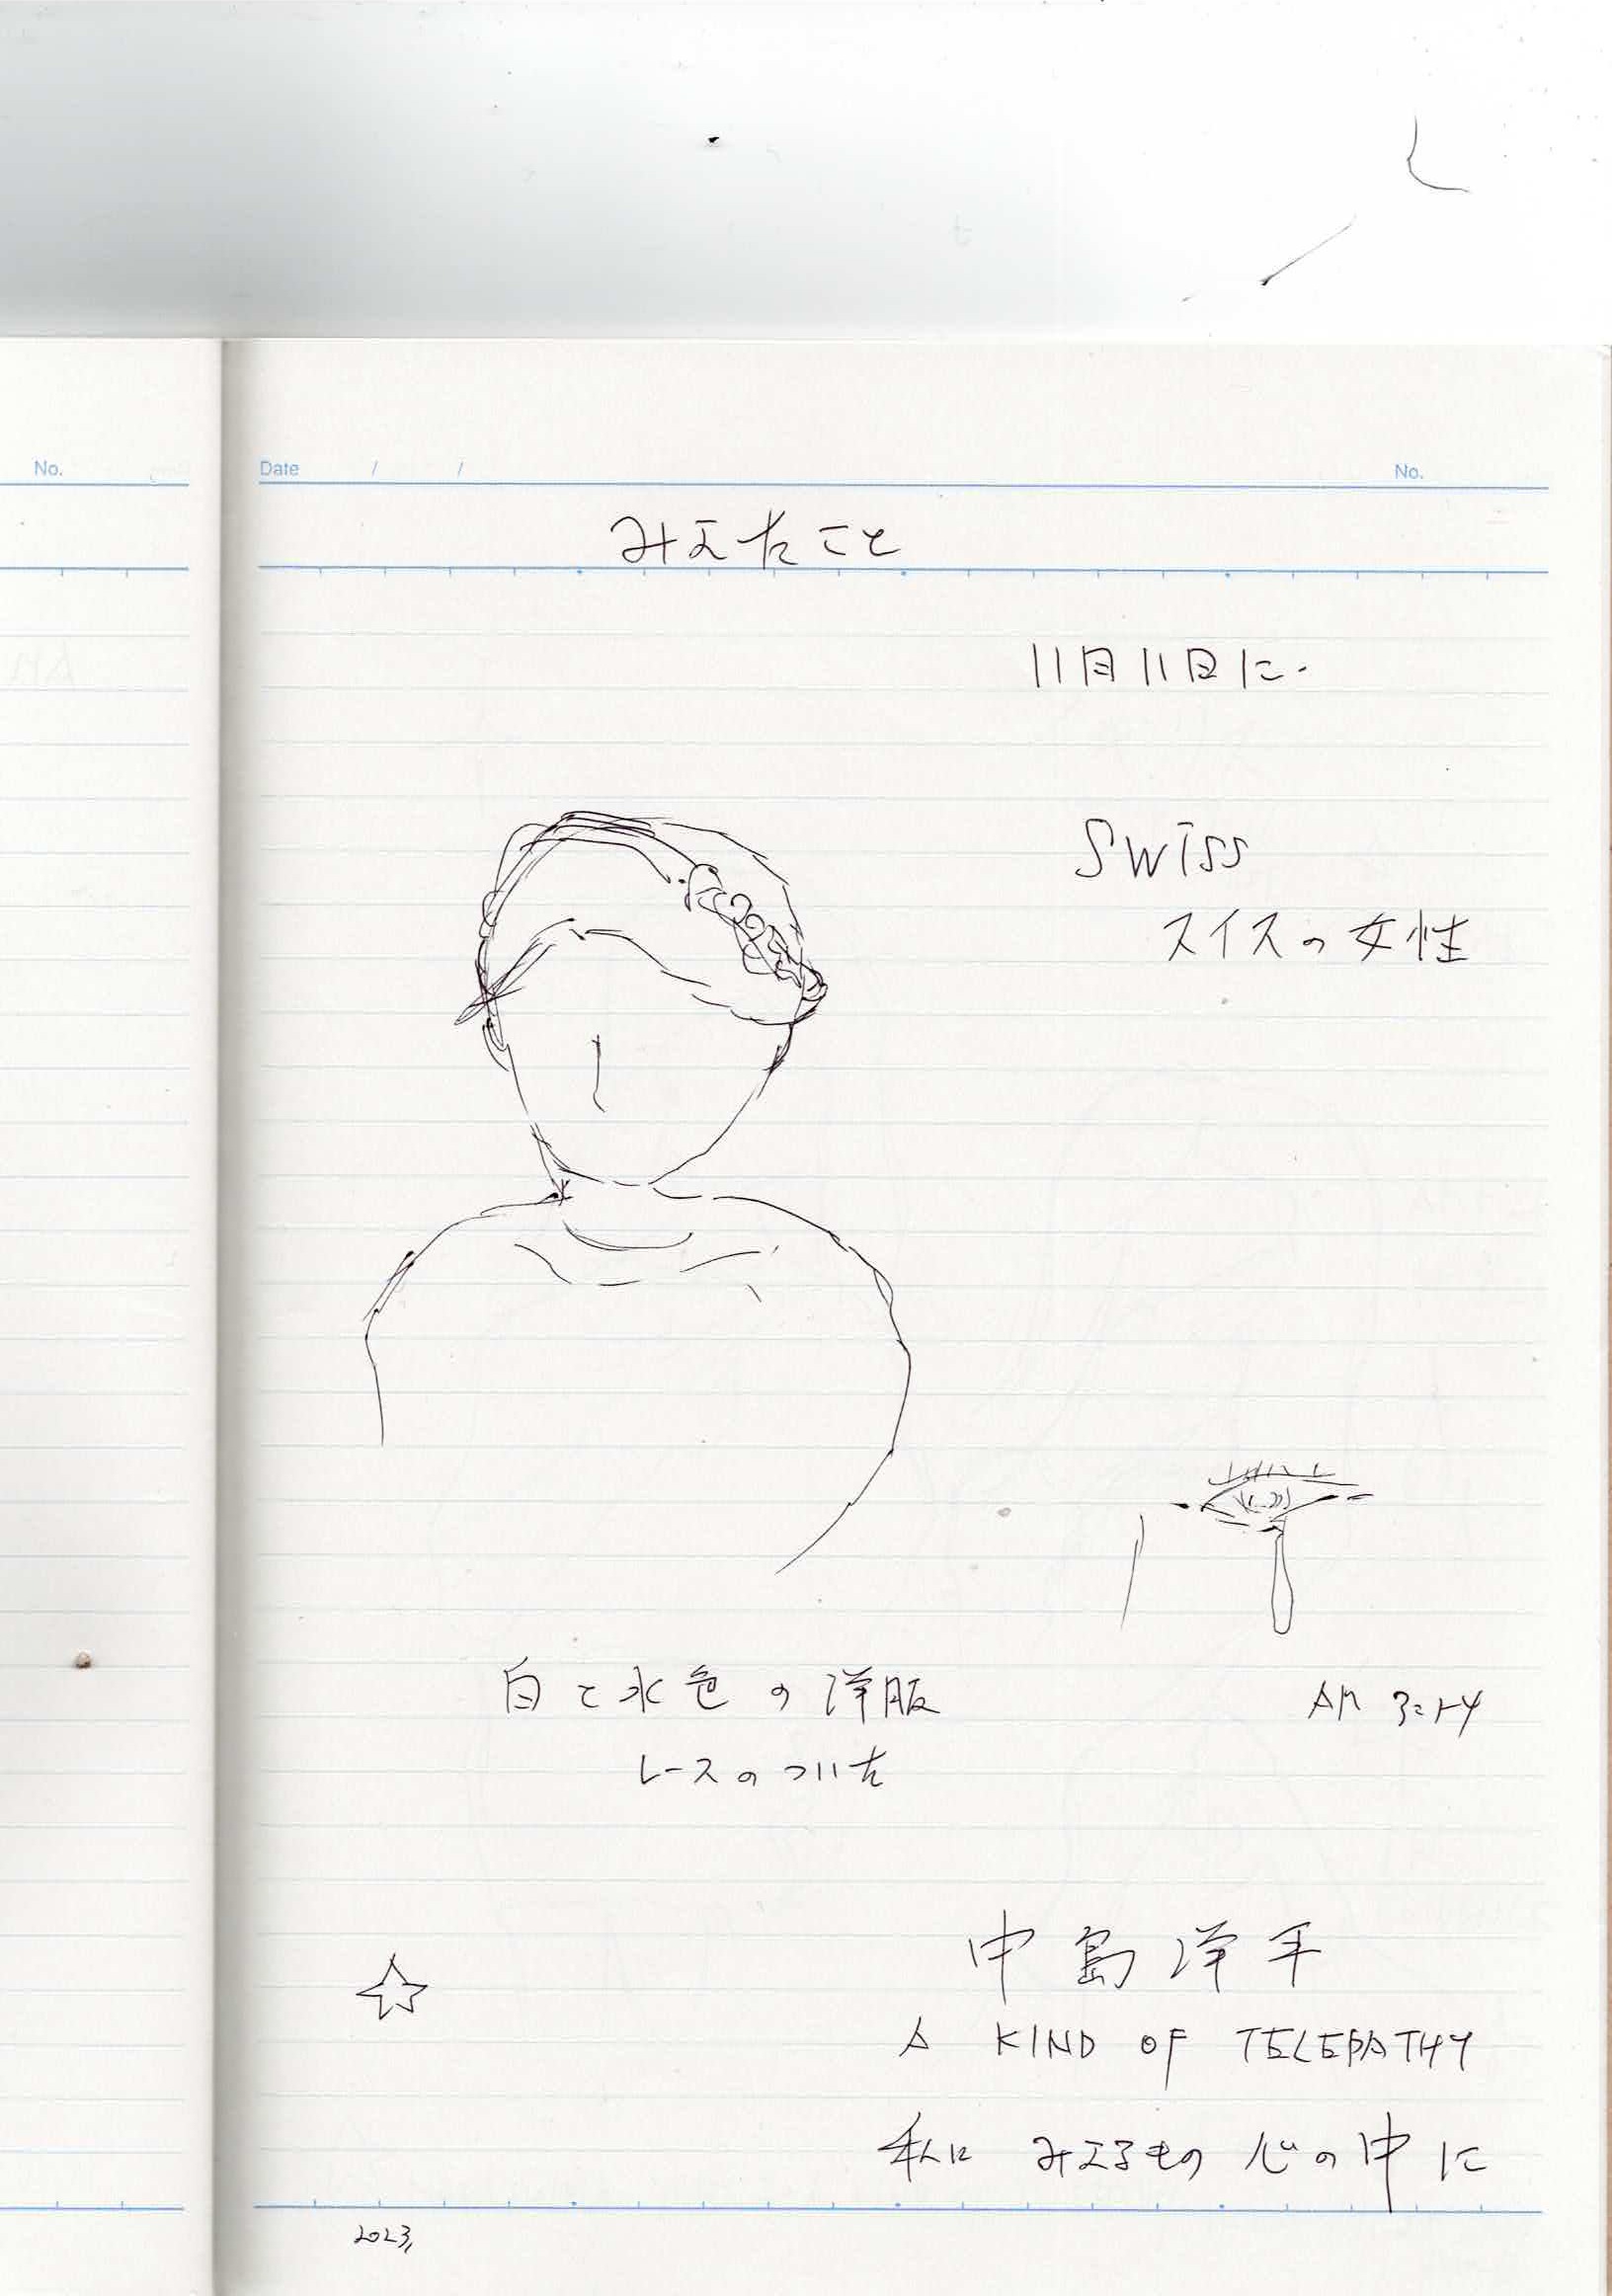 No.
Date / /
No.
みえたこと
11月11日に.
Swiss
スイスの女性
白と水色の洋服
レースのついた
AM 3:14
中島洋手
A KIND OF TELEPATHY
私に みえるもの 心の中に
2023,